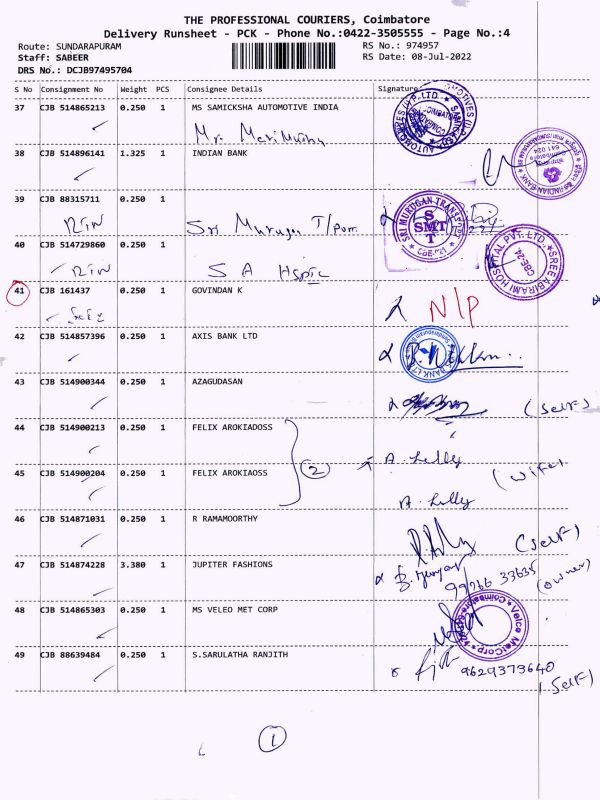 THE PROFESSIONAL COURIERS, Coimbatore
Delivery Runsheet - PCK - Phone No.:0422-3505555 - Page No.:4
Route: SUNDARAPURAM
RS No.: 974957
Staff: SABEER
RS Date: 08-Jul-2022
DRS No.: DCJB97495704
S No Consignment No Weight PCS Consignee Details Signature
37 CJB 514865213 0.250 1 MS SAMICKSHA AUTOMOTIVE INDIA
Mr. Marimuthu
38 CJB 514896141 1.325 1 INDIAN BANK
39 CJB 88315711 0.250 1
RIW Sri Murugan T/port
SRI MURUGAN TRANS
SMT
CBE-21
40 CJB 514729860 0.250 1
RIW S A Hspic
SREE ABIRAMI HOSPITAL PVT. LTD.
CBE-24
41 CJB 161437 0.250 1 GOVINDAN K
N/P
42 CJB 514857396 0.250 1 AXIS BANK LTD
43 CJB 514900344 0.250 1 AZAGUDASAN
(Self)
44 CJB 514900213 0.250 1 FELIX AROKIADOSS
2
A. Lilly
45 CJB 514900204 0.250 1 FELIX AROKIAOSS
(wife)
A. Lilly
46 CJB 514871031 0.250 1 R RAMAMOORTHY
(Self)
47 CJB 514874228 3.380 1 JUPITER FASHIONS
99266 33635 (owner)
48 CJB 514865303 0.250 1 MS VELEO MET CORP
Coimbatore
49 CJB 88639484 0.250 1 S.SARULATHA RANJITH
9629373640
(Self)
1